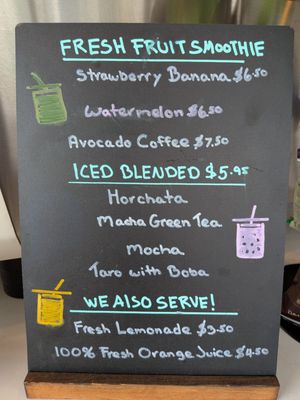 FRESH FRUIT SMOOTHIE
Strawberry Banana $6.50
Watermelon $6.50
Avocado Coffee $7.50
ICED BLENDED $5.95
Horchata
Macha Green Tea
Mocha
Taro with Boba
WE ALSO SERVE!
Fresh Lemonade $3.50
100% Fresh Orange Juice $4.50